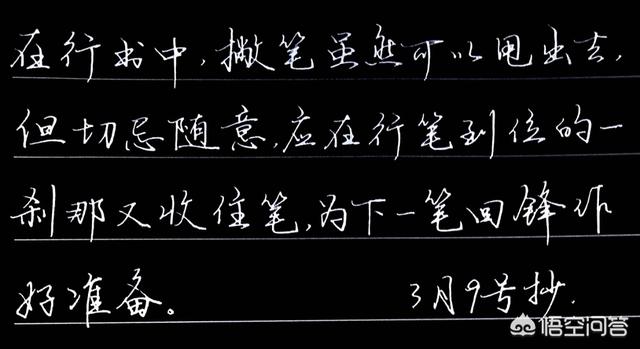 在行书中，撇笔虽然可以甩出去，
但切忌随意，应在行笔到位的一
刹那又收住笔，为下一笔回锋作
好准备。 3月9号抄.
悟空问答